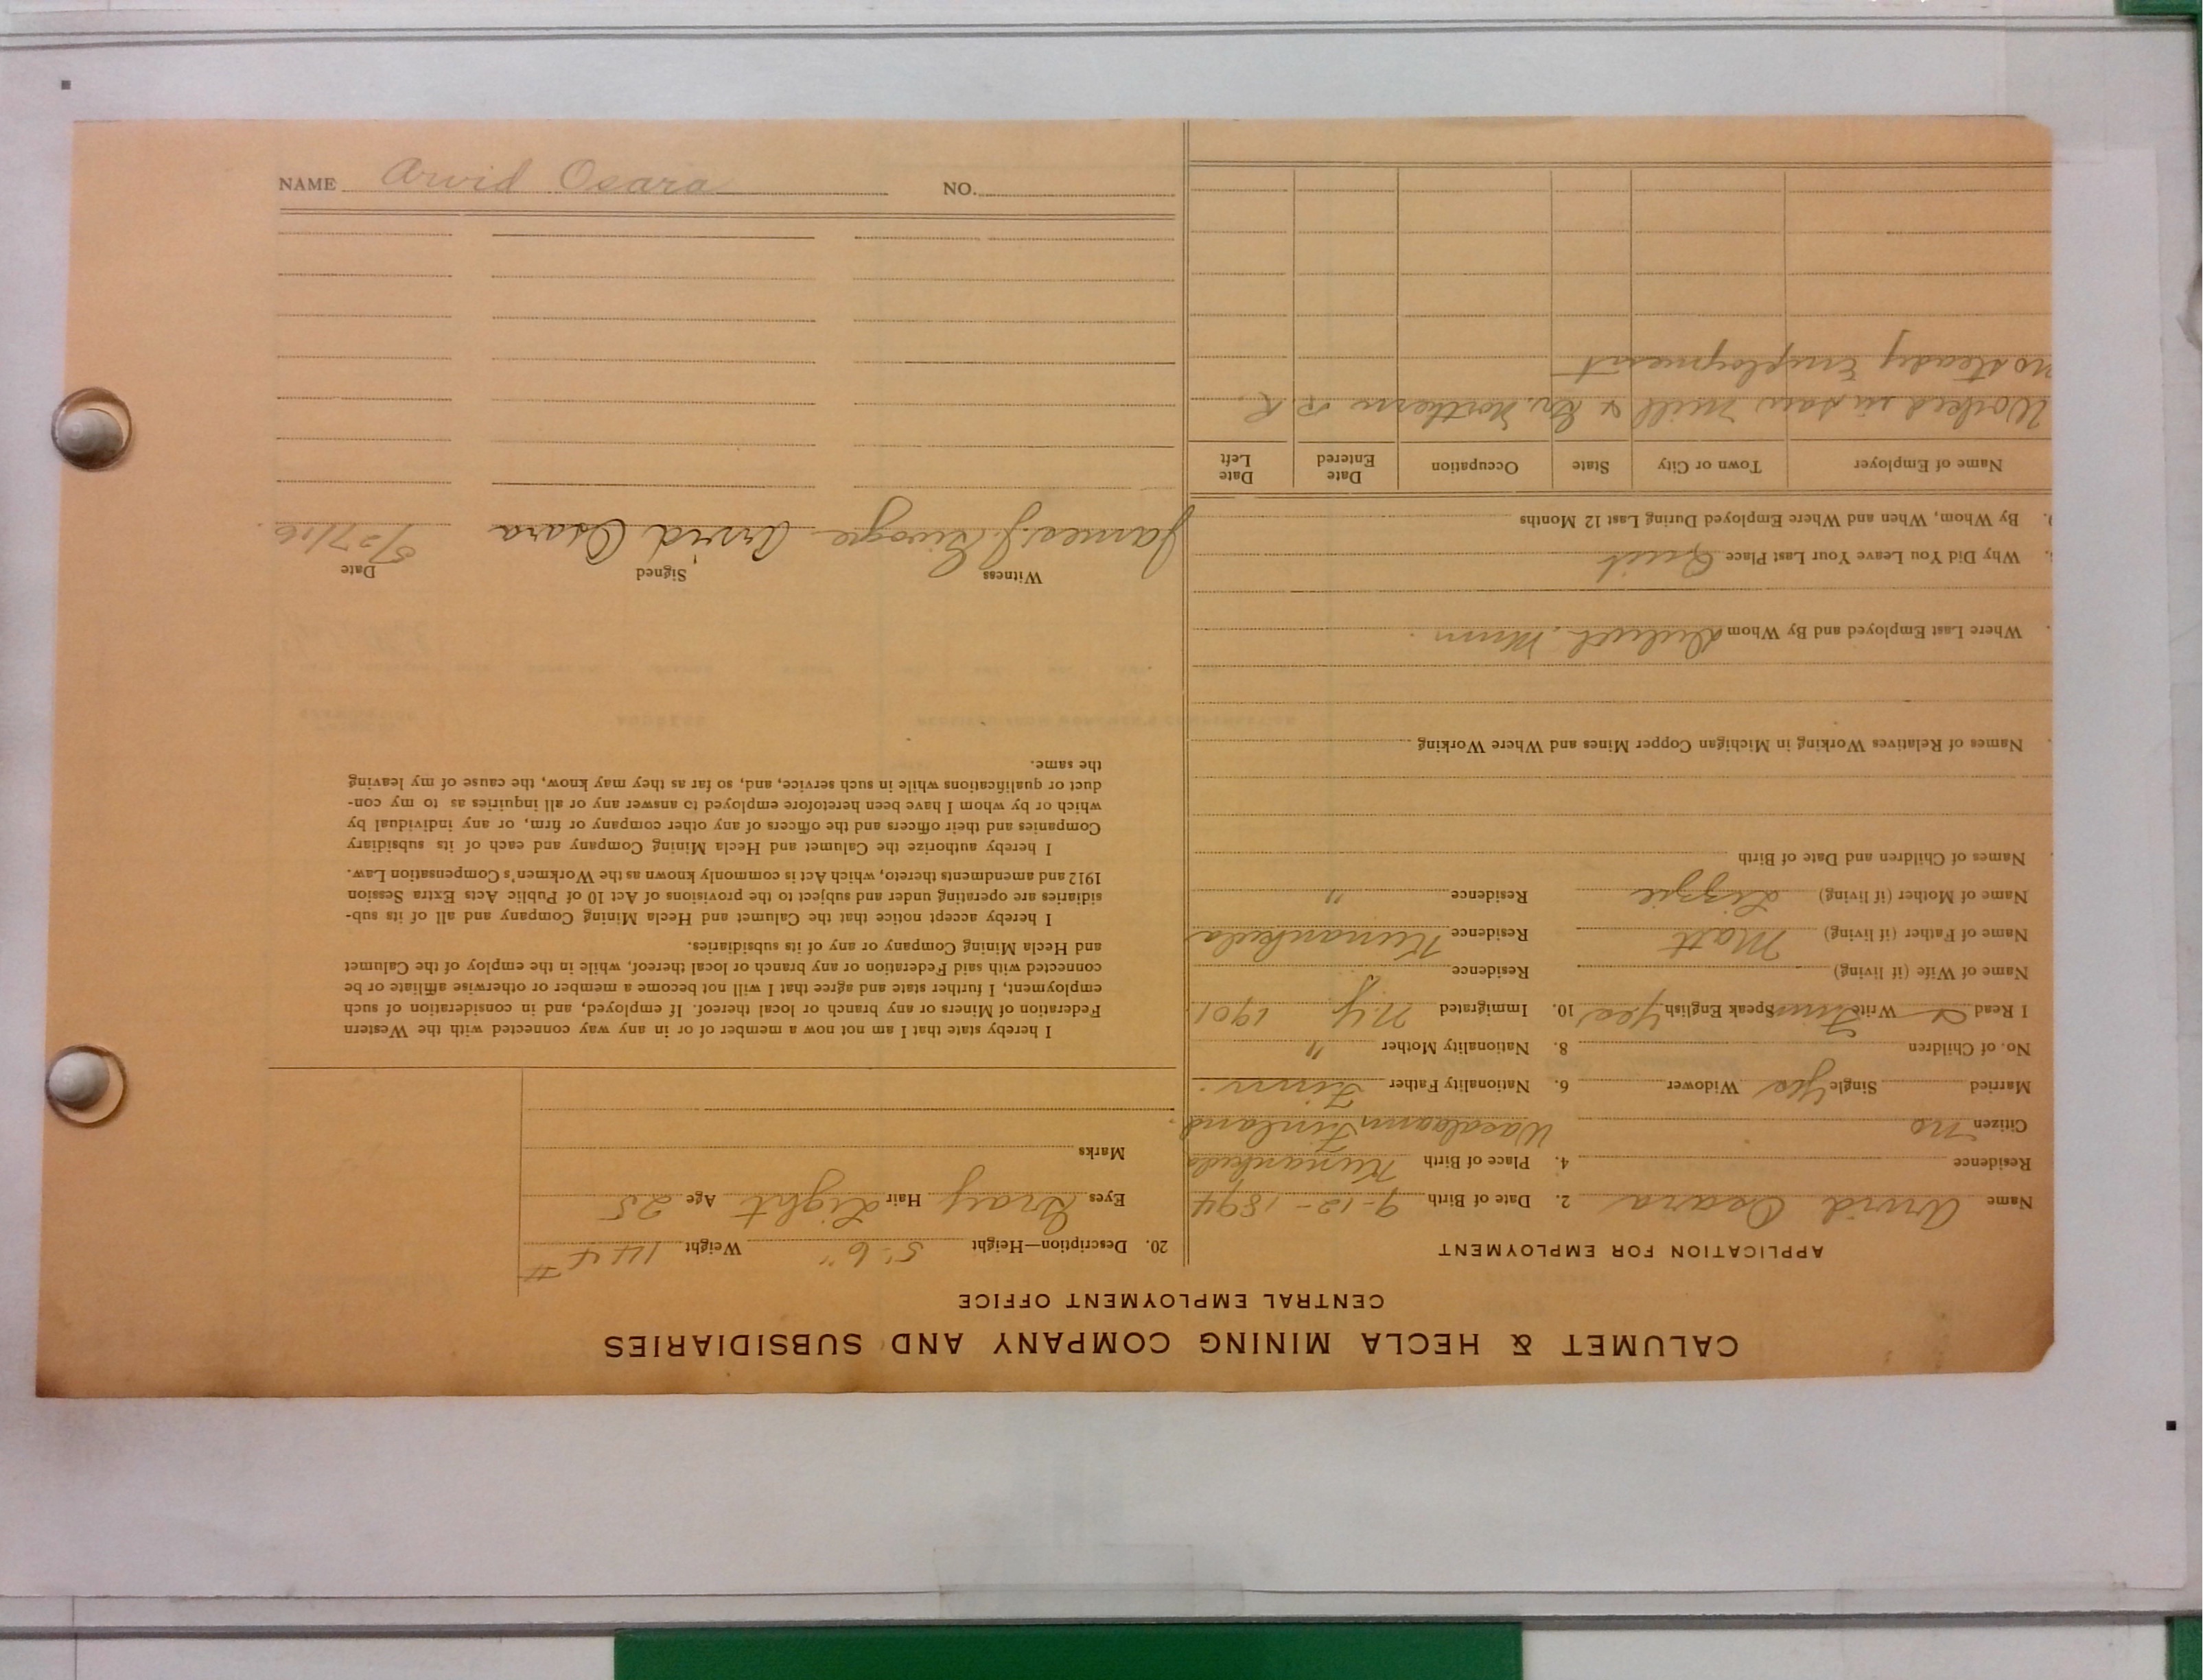 CALUMET & HECLA MINING COMPANY AND SUBSIDIARIES
CENTRAL EMPLOYMENT OFFICE
APPLICATION FOR EMPLOYMENT
Name Arvid Osara 2. Date of Birth 9-12-1894
Residence 4. Place of Birth
Finland
Citizen no
Married Single Yes Widower 6. Nationality Father Finn.
No. of Children 8. Nationality Mother "
I Read Write Finn Speak English Yes 10. Immigrated N.Y. 1901
Name of Wife (if living) Residence
Name of Father (if living) Matt Residence
Name of Mother (if living) Lizzie Residence "
Names of Children and Date of Birth
Names of Relatives Working in Michigan Copper Mines and Where Working
Where Last Employed and By Whom Duluth, Minn.
Why Did You Leave Your Last Place Quit
By Whom, When and Where Employed During Last 12 Months
Name of Employer Town or City State Occupation Date Entered Date Left
Worked in saw mill & Gr. Northern R.R.
no steady Employment
20. Description—Height 5' 6" Weight 144 #
Eyes Gray Hair Light Age 25
Marks
I hereby state that I am not now a member of or in any way connected with the Western
Federation of Miners or any branch or local thereof. If employed, and in consideration of such
employment, I further state and agree that I will not become a member or otherwise affiliate or be
connected with said Federation or any branch or local thereof, while in the employ of the Calumet
and Hecla Mining Company or any of its subsidiaries.
I hereby accept notice that the Calumet and Hecla Mining Company and all of its sub-
sidiaries are operating under and subject to the provisions of Act 10 of Public Acts Extra Session
1912 and amendments thereto, which Act is commonly known as the Workmen's Compensation Law.
I hereby authorize the Calumet and Hecla Mining Company and each of its subsidiary
Companies and their officers and the officers of any other company or firm, or any individual by
which or by whom I have been heretofore employed to answer any or all inquiries as to my con-
duct or qualifications while in such service, and, so far as they may know, the cause of my leaving
the same.
Witness Signed Date
James J. Arvid Osara
NAME Arvid Osara NO.